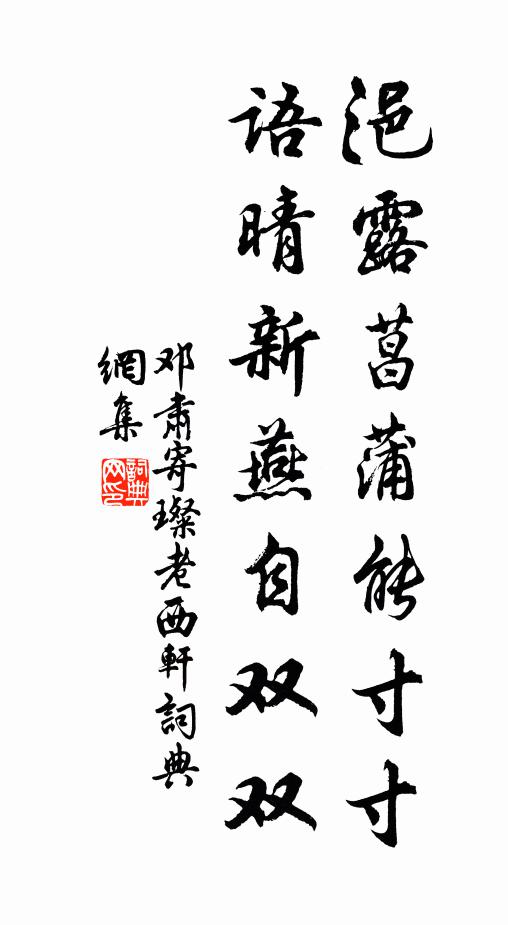 浥露菖蒲能寸寸
语晴新燕自双双
邓肃寄璨老西軒詞典
網集
詞典
网印